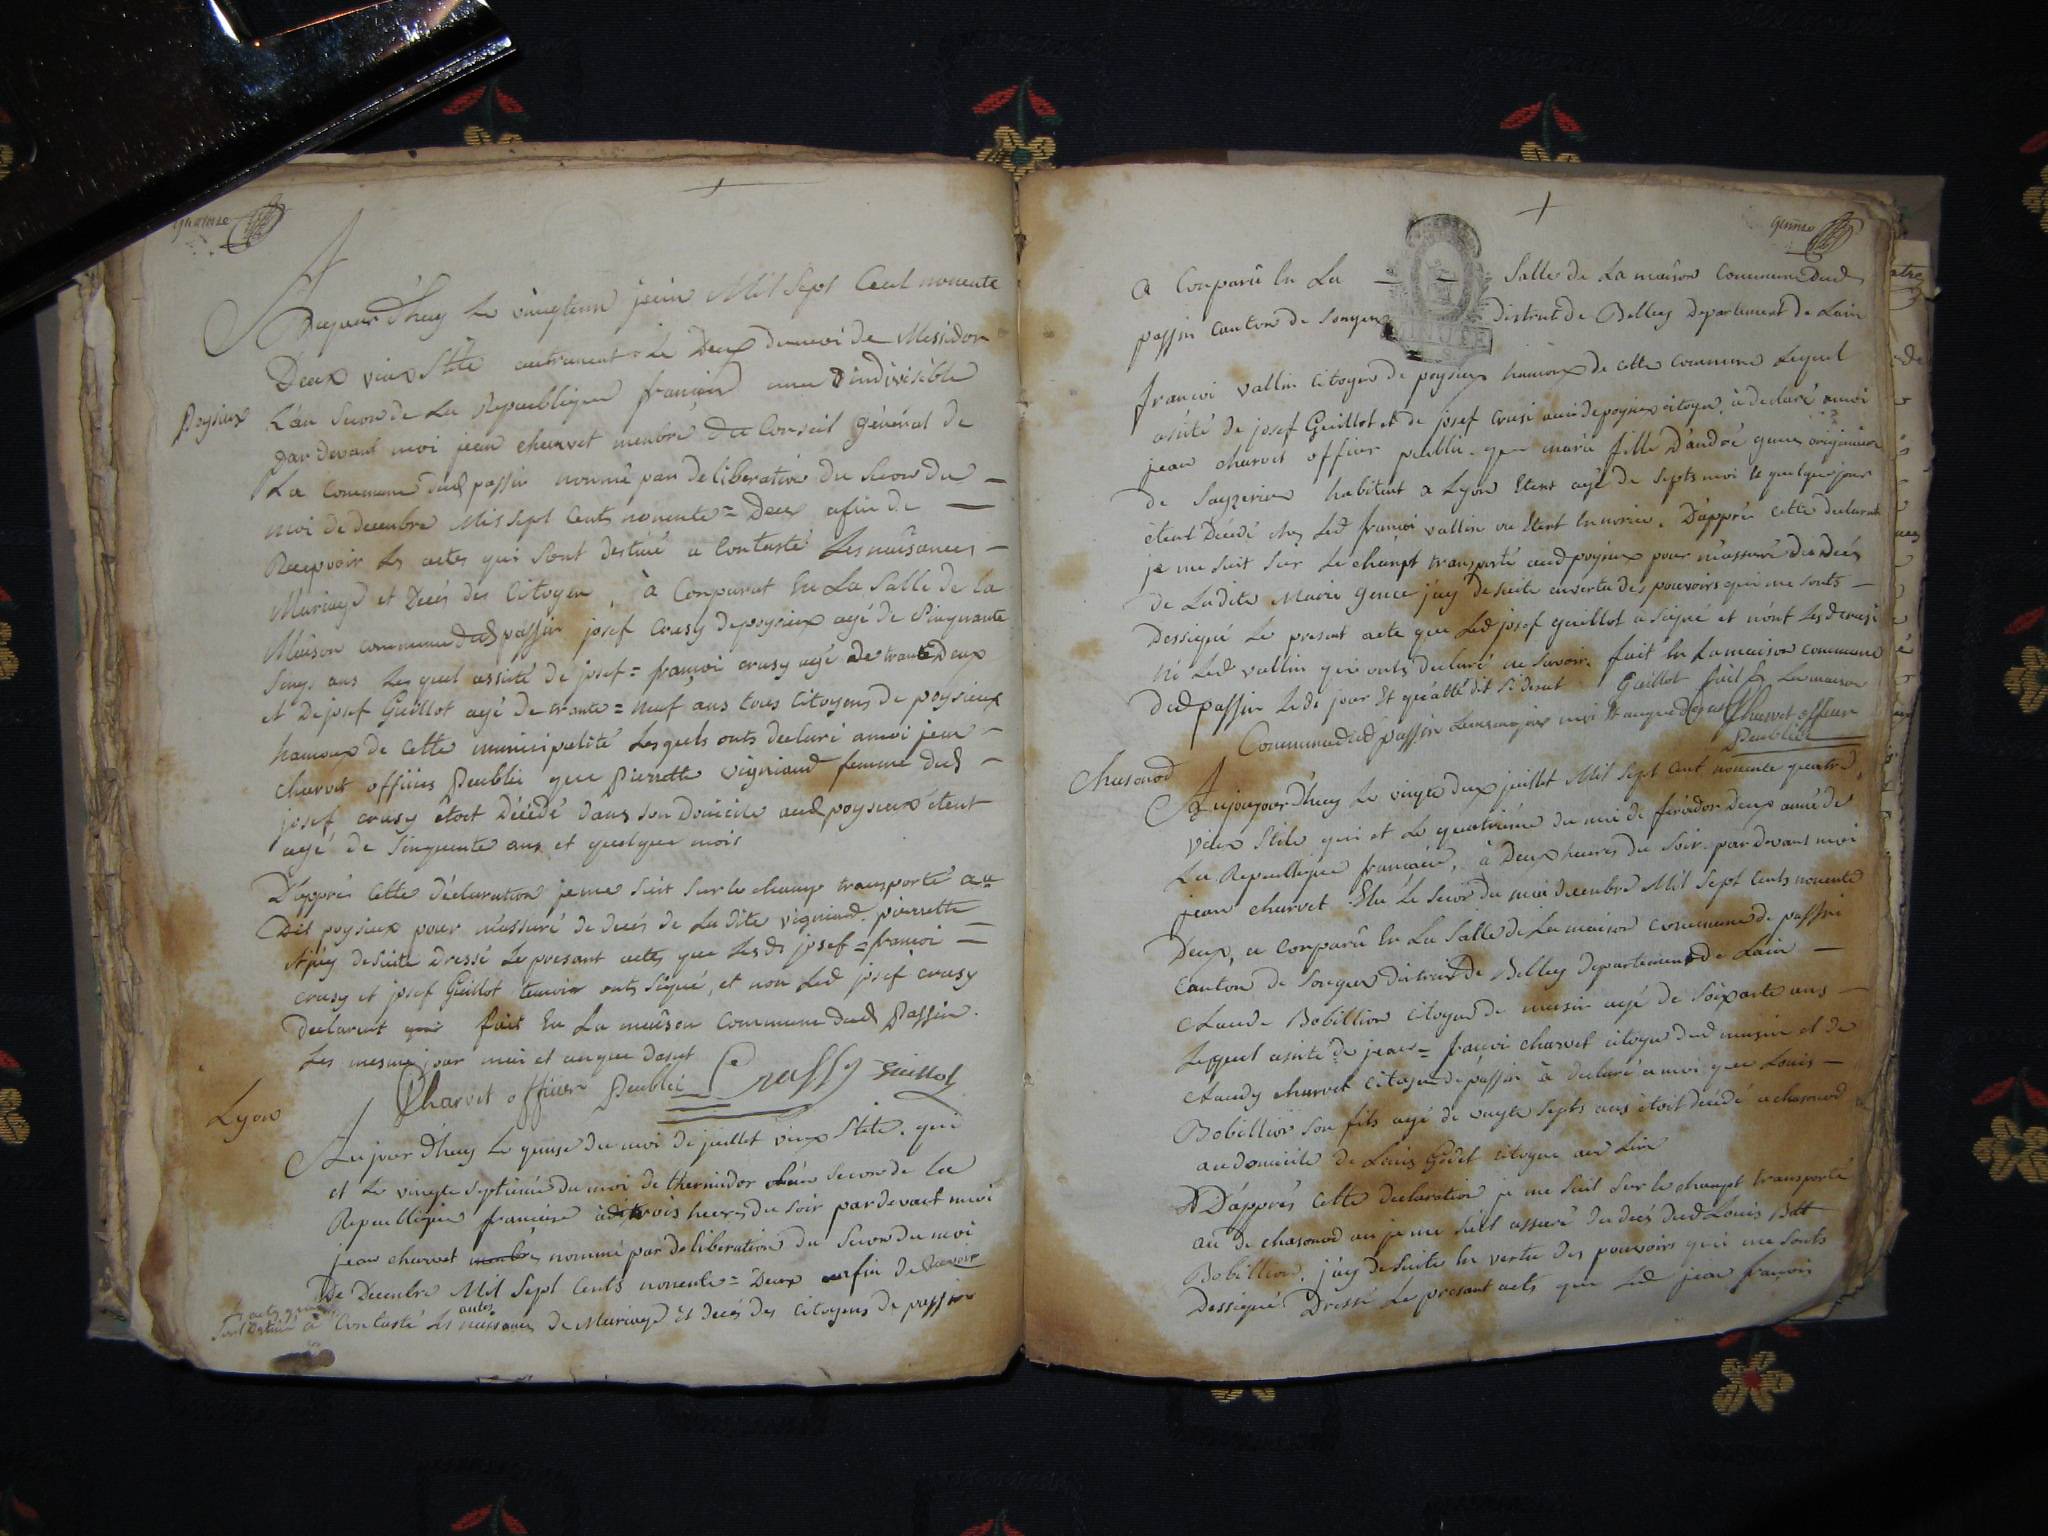 Aujourd'huy le vingtieme juin Mil Sept Cent nonente
Deux vieux Stile autrement le Deux du moi de Messidor
Poysieux
L'an Second de La Republique francais une & indivisible
par devant moi jean charvet membre du Conseil général de
La commune dud passin nommé par deliberation du Second du
moi de decembre Mil Sept Cents nonente = Deux afin de
Recepvoir les actes qui sont destiné a Contasté Les naisances
Mariage et Decés des Citoyen, à Conparut En La Salle de la
Maison commune dud passin josef crusy de poysieux agé de Sinquante
Sinq ans Les quel assisté de josef = francoi crusy agé de trante Deux
et De josef Guillot agé de trante = neuf ans tous Citoyens de poysieux
hamaux de cette municipalité Lesquels onts declaré a moi jean
charvet officier Peublic que Pierrette vigniand femme dud
josef crusy étoit Décédé dans son Domicile aud poysieux étent
agé de Sinquente ans et quelque mois
D'apprés Cette déclaration je me suit sur le champ transporté au
Dit poysieux pour m'assuré de decés de La dite vigniand pierrette
et j'ay desuite Dressé Le presant acte que Lesds josef = francoi
crusy et josef Guillot temoin onts Signé, et non Led josef crusy
declarent fait En La maison Commune dud Passin.
Les mesme jour moi et an que desut
Charvet officier Peublic Crussy Guillot
Lyon
Aujourd'huy Le quinse du moi de juillet vieux Stile. qui
et Le vingte septieme du moi de thermidor Second de La
Republique francaise à trois heures du Soir par devant moi
jean charvet membre nommé par deliberation du Second du moi
De Decembre Mil Sept Cents nonente = Deux enfin de Recevoir
à Contasté les naissances de Mariage et decés des Citoyens de passin
A Conparu En La Salle de La maison Commune Dud
passin Canton de Songieu district de Belley departement de Lain
francoi vallin Citoyen de poysieux hamaux de cette commune Lequel
asisté de josef Guillot et de josef crusi aussi de poysieux citoyen, à declaré amoi
jean charvet officier publlic que marie fille D'andré gence originaire
de habitant a Lyon Etent agé de Septs moi et quelque jour
étent Décédé chez Led francoi vallin ou Etent En norice. D'apprés cette declaration
je me suit Sur Le champt transporté aud poysieux pour m'assuré du decés
de Ladite Marie gence j'ay desuite en vertu des pouvoirs qui me sonts
Dessigné Le present acte que Led josef guillot à Signé et n'ont Lesd crusi
ni Led vallin qui onts declaré ne savoir. fait En La maison commune
dud passin Leds jour Et Guillot fait En La maison
Commune dud passin Charvet officier
Peublic
Chasonod
Aujourjourd'huy Le vingte deux juillet Mil Sept Cent nonente quatre
vieux Stile qui et Le quatrieme du moi de deux année de
La Republique francaise, à Deux heures du Soir. par devant moi
jean charvet Elu Le Second du moi decembre Mil Sept Cents nonente
Deux, a Conparu En La Salle de La maison Commune de passin
Canton de Songieu district De Belley departement de Lain
Claude Bobillion Citoyen de musin agé de Soixante ans
Lequel asisté de jean = francoi charvet citoyen dud musin et de
Claudy charvet Citoyen de passin à declaré a moi que Louis
Bobillion Son fils agé de vingte Septs ans étoit décédé a chasonod
au domicile de Louis Godet Citoyen aud Lieu
D'apprés Cette declaration je me suit Sur le champt transporté
au de chasonod ou je me suit assuré du decés dud Louis Batt
Bobilliond, j'ay desuite En vertu des pouvoirs qui me sonts
Dessigné Dressé Le presant acte que Led jean francois